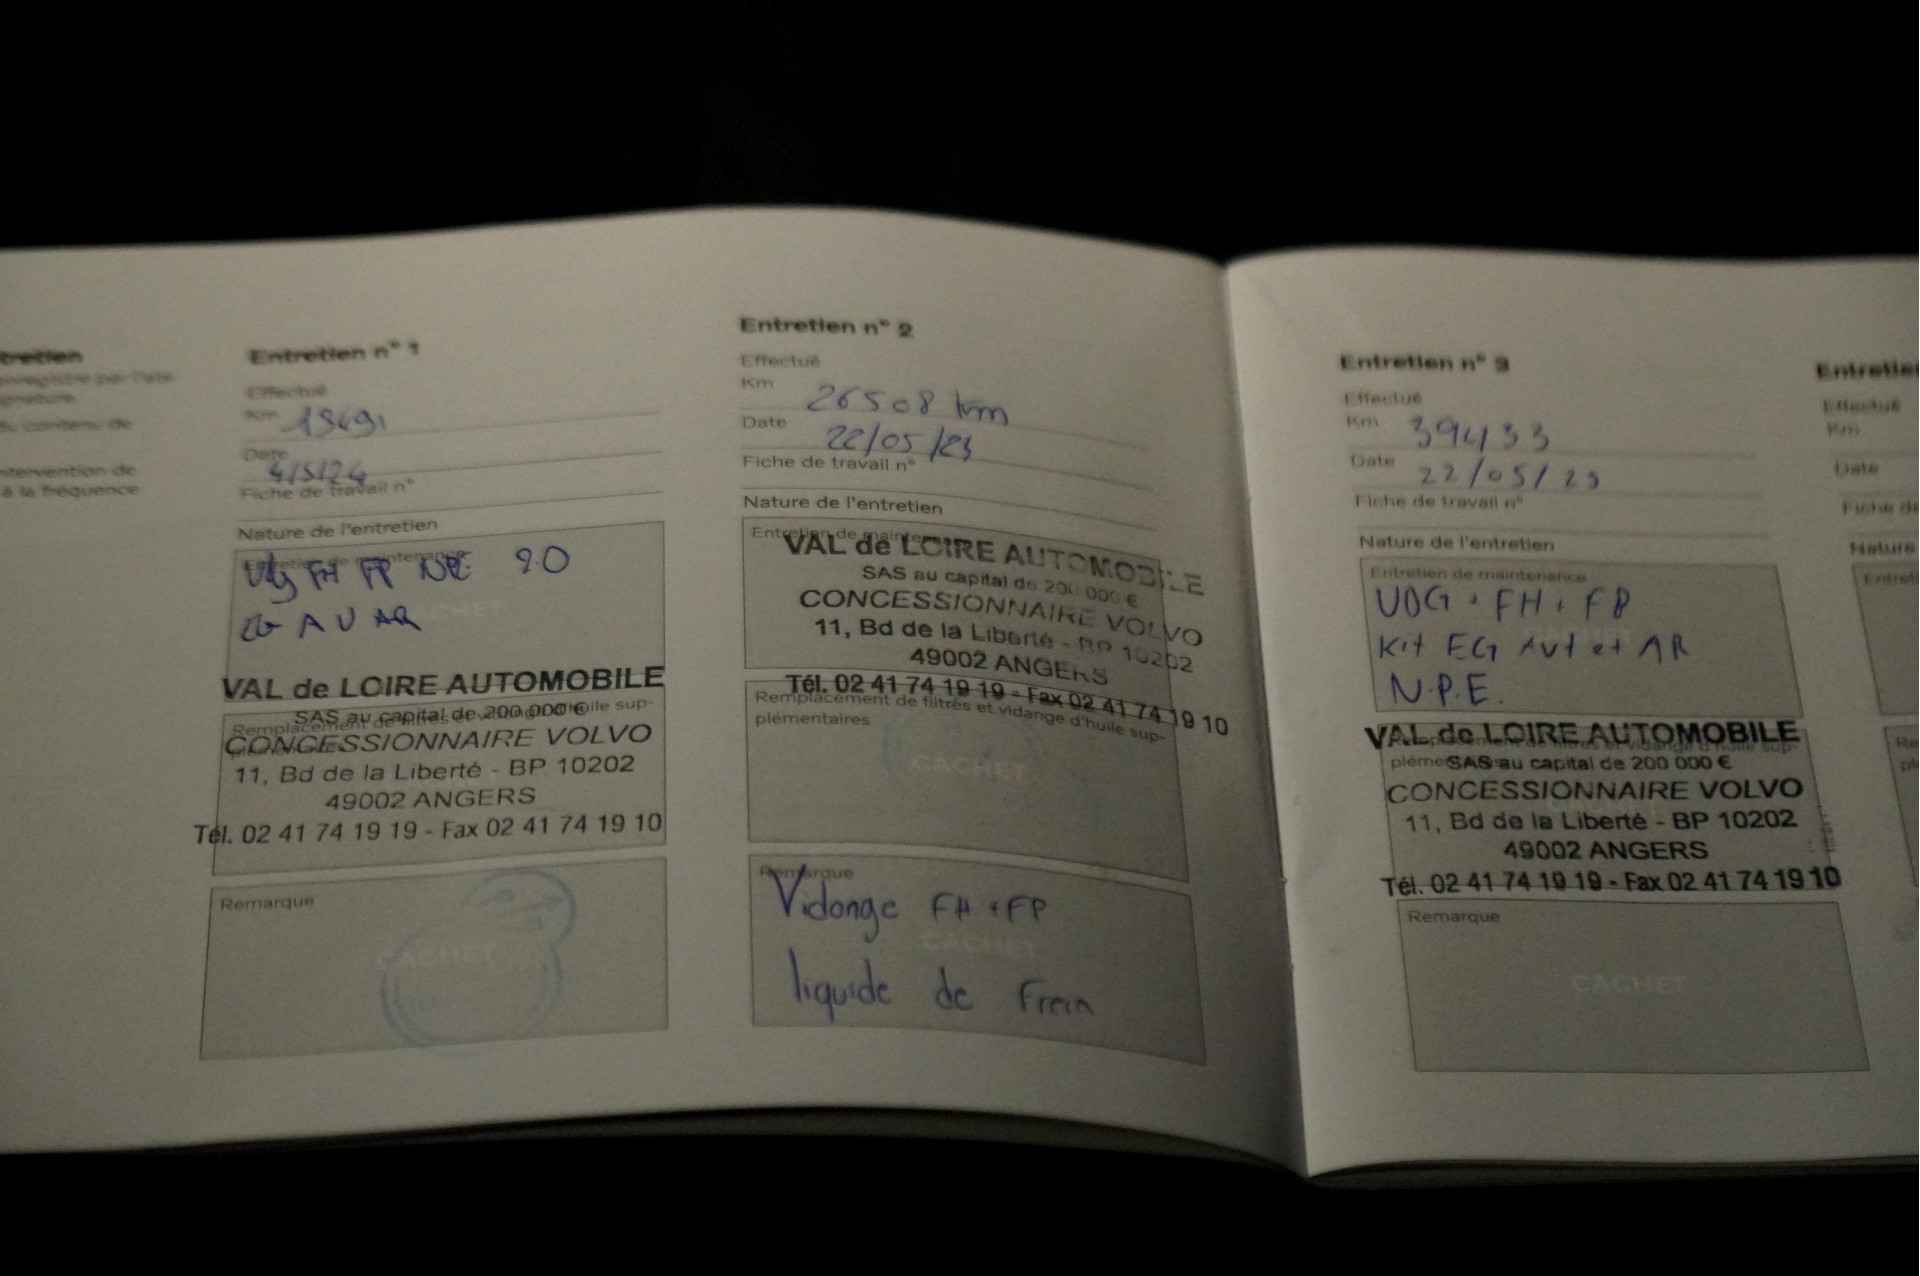 tretien
enregistre par l'ate-
gnature.
du contenu de
ntervention de
à la fréquence
Entretien n° 1
Effectué
Km 19491
Date 4/5/24
Fiche de travail n°
Nature de l'entretien
Entretien de maintenance
Vdg FH FP NPE 9.0
EG AV AR
CACHET
VAL de LOIRE AUTOMOBILE
SAS au capital de 200 000 €
Remplacement de filtres et vidange d'huile sup-
CONCESSIONNAIRE VOLVO
11, Bd de la Liberté - BP 10202
49002 ANGERS
Tél. 02 41 74 19 19 - Fax 02 41 74 19 10
Remarque
CACHET
Entretien n° 2
Effectué
Km 26508 km
Date 22/05/23
Fiche de travail n°
Nature de l'entretien
Entretien de maintenance
VAL de LOIRE AUTOMOBILE
SAS au capital de 200 000 €
CONCESSIONNAIRE VOLVO
11, Bd de la Liberté - BP 10202
49002 ANGERS
Tél. 02 41 74 19 19 - Fax 02 41 74 19 10
Remplacement de filtres et vidange d'huile sup-
plémentaires
CACHET
Remarque
Vidange FH + FP
CACHET
liquide de Frein
Entretien n° 3
Effectué
Km 39433
Date 22/05/25
Fiche de travail n°
Nature de l'entretien
Entretien de maintenance
VDG + FH + FP
Kit EG Avt et AR
N.P.E.
VAL de LOIRE AUTOMOBILE
SAS au capital de 200 000 €
CONCESSIONNAIRE VOLVO
11, Bd de la Liberté - BP 10202
49002 ANGERS
Tél. 02 41 74 19 19 - Fax 02 41 74 19 10
Remarque
CACHET
Entretien
Effectué
Km
Date
Fiche de
Nature
Entreti
Re
plé